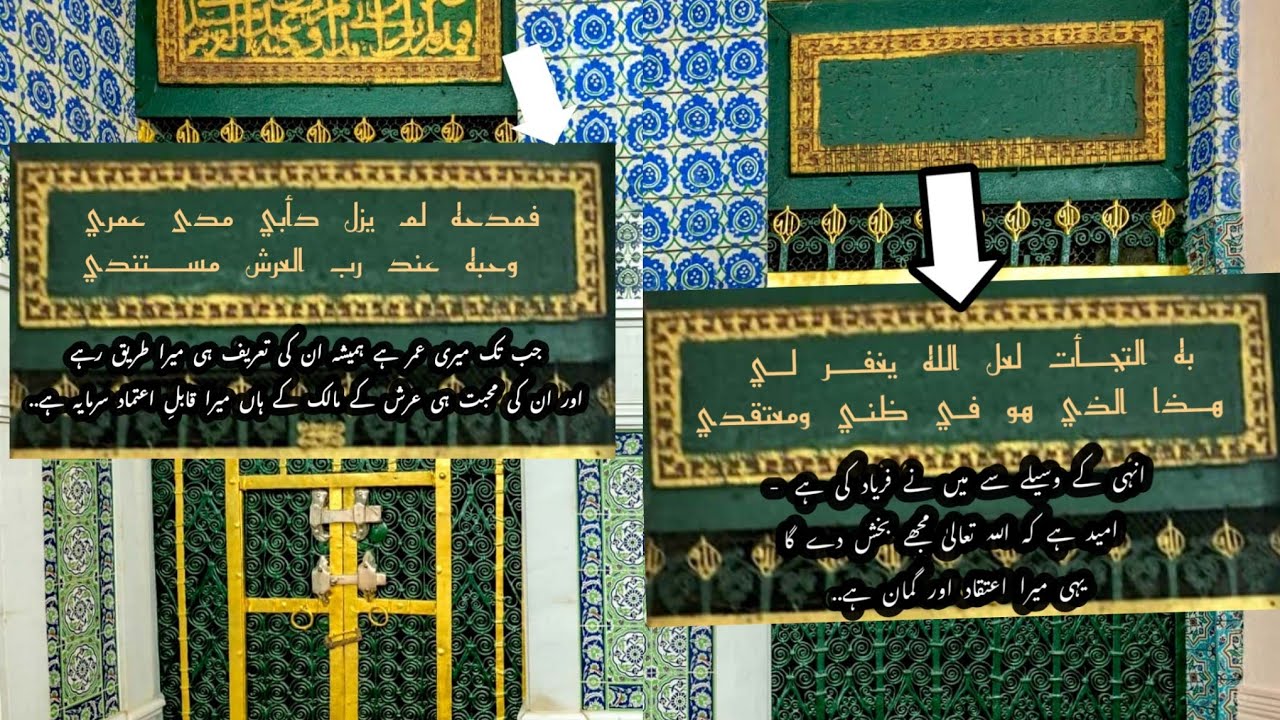 فمدحه لم يزل دأبي مدى عمري
وحبه عند رب العرش مستندي
جب تک میری عمر ہے ہمیشہ ان کی تعریف ہی میرا طریق رہے
اور ان کی محبت ہی عرش کے مالک کے ہاں میرا قابلِ اعتماد سرمایہ ہے..
به التجأت لعل الله يغفر لي
هذا الذي هو في ظني ومعتقدي
انہی کے وسیلے سے میں نے فریاد کی ہے -
امید ہے کہ اللہ تعالیٰ مجھے بخش دے گا
یہی میرا اعتقاد اور گمان ہے..